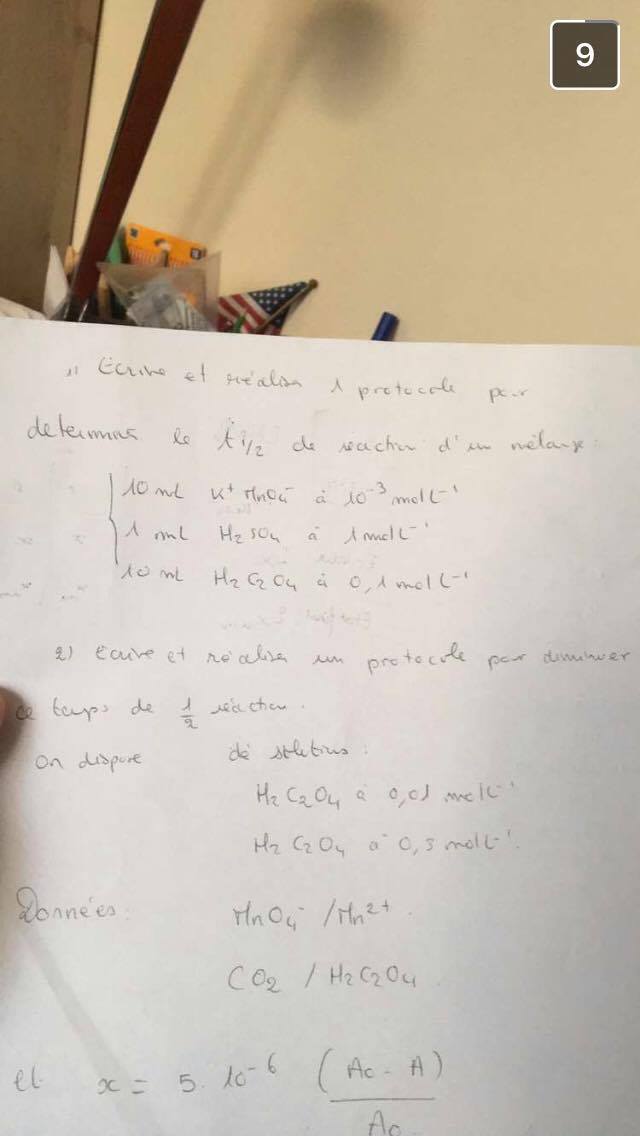 9
1) Ecrire et réaliser 1 protocole pour
determiner le t1/2 de reaction d'un mélange :
10 mL K+ MnO4- à 10-3 mol L-1
1 mL H2SO4 à 1 mol L-1
10 mL H2C2O4 à 0,1 mol L-1
2) Ecrire et réaliser un protocole pour diminuer
ce temps de 1/2 réaction.
On dispose de solutions :
H2C2O4 à 0,01 mol L-1
H2C2O4 à 0,5 mol L-1.
Données : MnO4- / Mn2+.
CO2 / H2C2O4
et x = 5. 10-6 (A0 - A) / A0